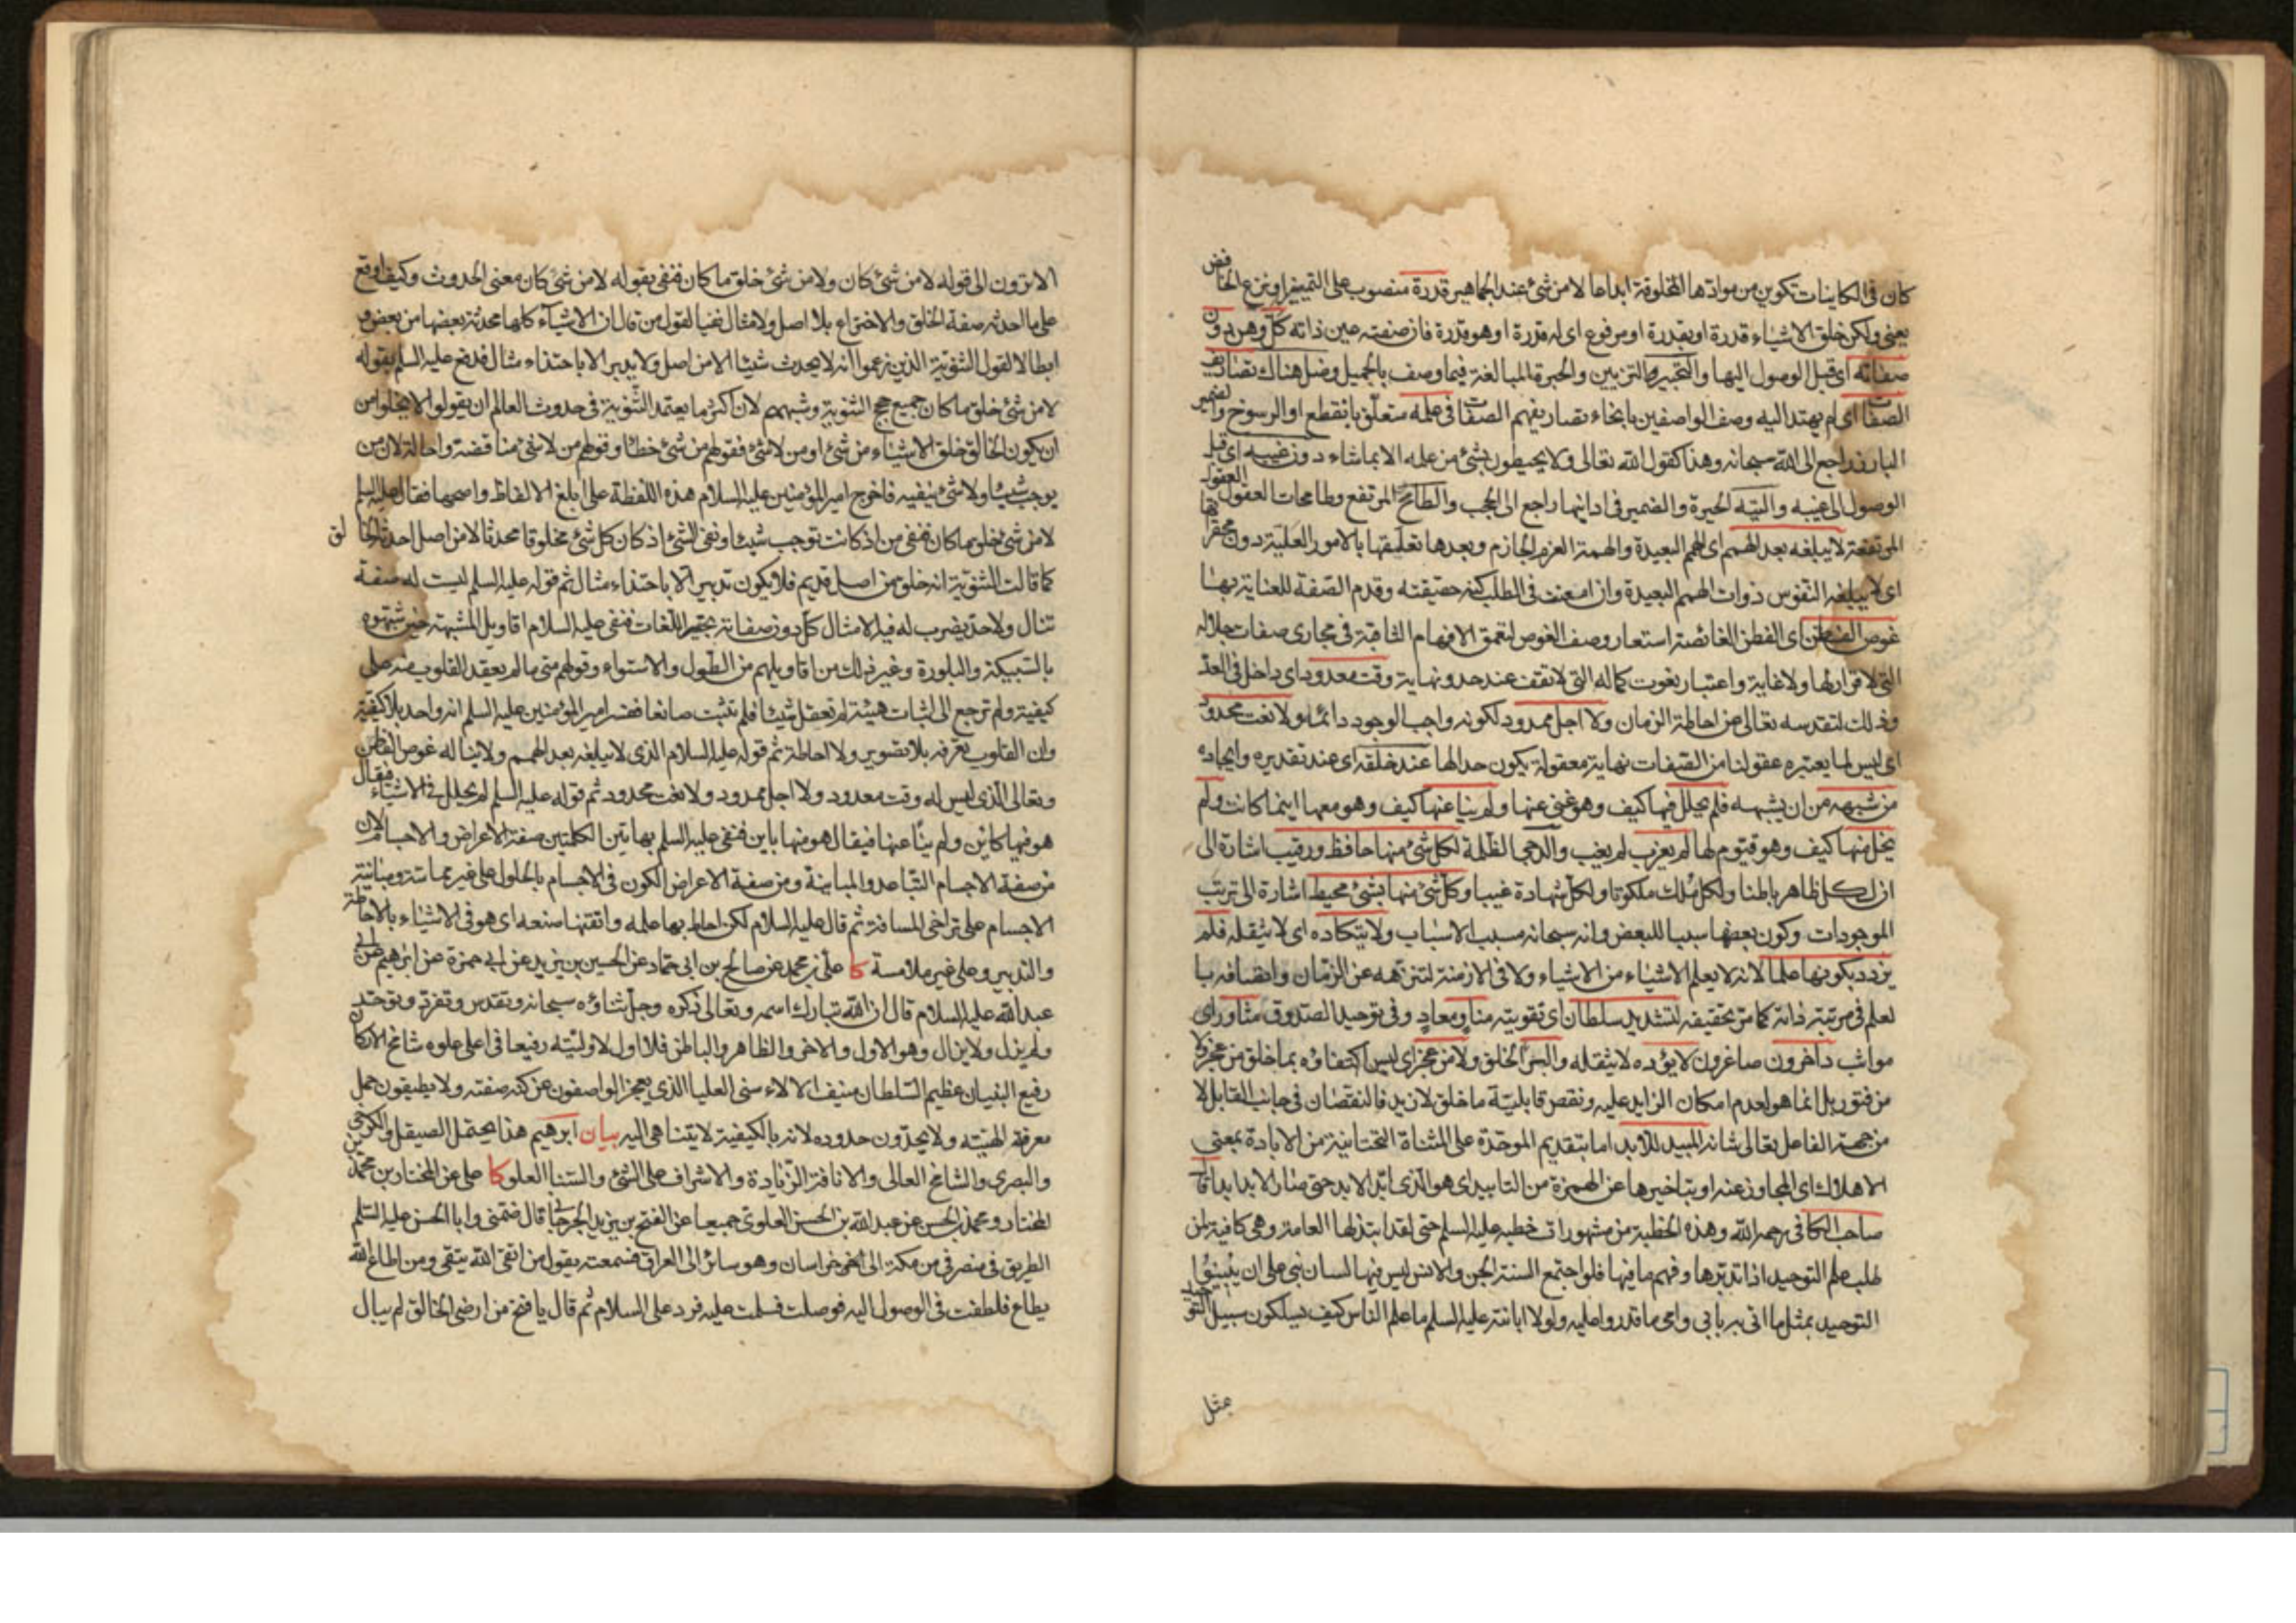 كان في الكاينات تكوين من موادها المخلوقة ابداعا لا من شئ عند الجماهير قدرة منصوب على التمييز او بنزع الخافض
يعني ولكن خلق الاشياء قدرة او بقدرة او مرفوع اي له قدرة او هو قدرة فان صفته عين ذاته كلّ وهن دون
صفاته اي قبل الوصول اليها والتحبير التزيين والحبرة المبالغة فيما وصف بالجميل وضل هناك تصاريف
الصفات اي لم يهتد اليه وصف الواصفين بانحاء تصاريفهم الصفات في علمه متعلق بانقطع او الرسوخ والضمير
البارز راجع الى الله سبحانه وهذا كقول الله تعالى ولا يحيطون بشئ من علمه الا بما شاء دون غيبه اي قبل
الوصول الى غيبه والتيه الحيرة والضمير في ادانيها راجع الى الحجب والطامح المرتفع وطامحات العقول العقول
المرتفعة لا يبلغه بعد الهمم اي الهمم البعيدة والهمة العزم الجازم وبعدها تعلقها بالامور العلية دون محقراتها
اي لا يبلغه النفوس ذوات الهمم البعيدة وان امعنت في الطلب كنه حقيقته وقدم الصفة للعناية بها
غوص الفطن اي الفطن الغائصة استعار وصف الغوص لتعمق الافهام الثاقبة في مجاري صفات جلاله
التي لا قرار لها ولا غاية واعتبار نعوت كماله التي لا تقف عند حد ونهاية وقت معدود اي داخل في العد
وذلك لتقدسه تعالى عن احاطة الزمان ولا اجل ممدود لكونه واجب الوجود دائما ولا نعت محدود
اي ليس لما يعتبره عقولنا من الصفات نهاية معقولة يكون حدا لها عند خلقه اي عند تقديره وايجاده
من شبهه من ان يشبهه فلم يحلل فيها كيف وهو غني عنها ولم ينا عنها كيف وهو معها اينما كانت ولم
يخل منها كيف وهو قيوم لها لم يعزب لم يغب والدجى الظلمة لكل شئ منها حافظ ورقيب اشارة الى
ان لكل ظاهر باطنا ولكل ملك ملكوتا ولكل شهادة غيبا وكل شئ منها بشئ محيط اشارة الى ترتب
الموجودات وكون بعضها سببا للبعض وانه سبحانه مسبب الاسباب ولا يتكاده اي لا يثقله فلم
يزدد بكونها علما لانه لا يعلم الاشياء من الاشياء ولا في الازمنة لتنزهه عن الزمان واتصافه با
لعلم في مرتبة ذاته كما مر تحقيقه لتشديد سلطان اي تقويته مناو ومعاد وفي توحيد الصدوق مثاور اي
مواثب داخرون صاغرون لا يؤده لا يثقله والبرء الخلق ولا من عجز اي ليس اكتفاؤه بما خلق من عجز ولا
من فتور بل انما هو لعدم امكان الزايد عليه ونقص قابلية ما خلق لازيد فالنقصان في جانب القابل لا
من جهة الفاعل تعالى شانه المبيد للابد اما بتقديم الموحدة على المثناة التحتانية من الابادة بمعنى
الاهلاك اي المجاوز عنه او بتاخيرها عن الهمزة من التابيد اي هو الذي ابّد الابد حتى صار الابد ابدا قال
صاحب الكافي رحمه الله وهذه الخطبة من مشهورات خطبه عليه السلم حتى لقد ابتذلها العامة وهي كافية لمن
طلب علم التوحيد اذا تدبرها وفهم ما فيها فلو اجتمع السنة الجن والانس ليس فيها لسان نبي على ان يبينوا
التوحيد بمثل ما اتى به بابي وامي ما قدروا عليه ولولا ابانته عليه السلم ما علم الناس كيف يسلكون سبيل التوحيد
الا ترون الى قوله لا من شئ كان ولا من شئ خلق ما كان فنفى بقوله لا من شئ كان معنى الحدوث وكيف اوقع
على ما احدثه صفة الخلق والاختراع بلا اصل ولا مثال نفيا لقول من قال ان الاشياء كلها محدثة بعضها من بعض و
ابطالا لقول الثنوية الذين زعموا انه لا يحدث شيئا الا من اصل ولا يدبر الا باحتذاء مثال فدفع عليه السلم بقوله
لا من شئ خلق ما كان جميع حجج الثنوية وشبههم لان اكثر ما يعتمد الثنوية في حدوث العالم ان يقولوا لا يخلوا من
ان يكون الخالق خلق الاشياء من شئ او من لا شئ فقولهم من شئ خطأ وقولهم من لا شئ مناقضة واحالة لان من
يوجب شيئا ولا شئ ينفيه فاخرج امير المؤمنين عليه السلام هذه اللفظة على ابلغ الالفاظ واصحها فقال عليه السلم
لا من شئ خلق ما كان فنفى من اذ كانت توجب شيئا ونفى الشئ اذ كان كل شئ مخلوقا محدثا لا من اصل احدثه الخالق
كما قالت الثنوية انه خلق من اصل قديم فلا يكون تدبير الا باحتذاء مثال ثم قوله عليه السلم ليست له صفة
تنال ولا حد يضرب له فيه الامثال كل دون صفاته تحبير اللغات فنفى عليه السلام اقاويل المشبهة حين شبهوه
بالسبيكة والبلورة وغير ذلك من اقاويلهم من الطول والاستواء وقولهم متى ما لم يعقد القلوب منه على
كيفية ولم ترجع الى اثبات هيئة لم تعقل شيئا فلم تثبت صانعا ففسر امير المؤمنين عليه السلم انه واحد بلا كيفية
وان القلوب تعرفه بلا تصوير ولا احاطة ثم قوله عليه السلام الذي لا يبلغه بعد الهمم ولا يناله غوص الفطن
وتعالى الذي ليس له وقت معدود ولا اجل ممدود ولا نعت محدود ثم قوله عليه السلم لم يحلل في الاشياء فيقال
هو فيها كائن ولم ينأ عنها فيقال هو منها باين فنفى عليه السلم بهاتين الكلمتين صفة الاعراض والاجسام لان
من صفة الاجسام التباعد والمباينة ومن صفة الاعراض الكون في الاجسام بالحلول على غير مماسة ومباينة
الاجسام على تراخي المسافة ثم قال عليه السلام لكن احاط بها علمه واتقنها صنعه اي هو في الاشياء بالاحاطة
والتدبير وعلى غير ملامسة كا علي بن محمد عن صالح بن ابي حماد عن الحسين بن يزيد عن ابي حمزة عن ابرهيم عن ابي
عبد الله عليه السلام قال ان الله تبارك اسمه وتعالى ذكره وجل ثناؤه سبحانه وتقدس وتفرد وتوحد
ولم يزل ولا يزال وهو الاول والاخر والظاهر والباطن فلا اول لاوليته رفيعا في اعلى علوه شامخ الاركان
رفيع البنيان عظيم السلطان منيف الالاء سنى العليا الذي يعجز الواصفون عن كنه صفته ولا يطيقون حمل
معرفة الهيته ولا يحدّون حدوده لانه بالكيفية لا يتناهى اليه بيان ابرهيم هذا يحتمل الصيقل والكرخي
والبصري والشامخ العالي والانافة الزيادة والاشراف على الشئ والسنا العلو كا علي عن المختار بن محمد بن
المختار ومحمد بن الحسن عن عبد الله بن الحسن العلوي جميعا عن الفتح بن يزيد الجرجاني قال ضمني وابا الحسن عليه السلم
الطريق في منصرفي من مكة الى خراسان وهو سائر الى العراق فسمعته يقول من اتقى الله يتقى ومن اطاع الله
يطاع فلطفت في الوصول اليه فوصلت فسلمت عليه فرد على السلام ثم قال يا فتح من ارضى الخالق لم يبال